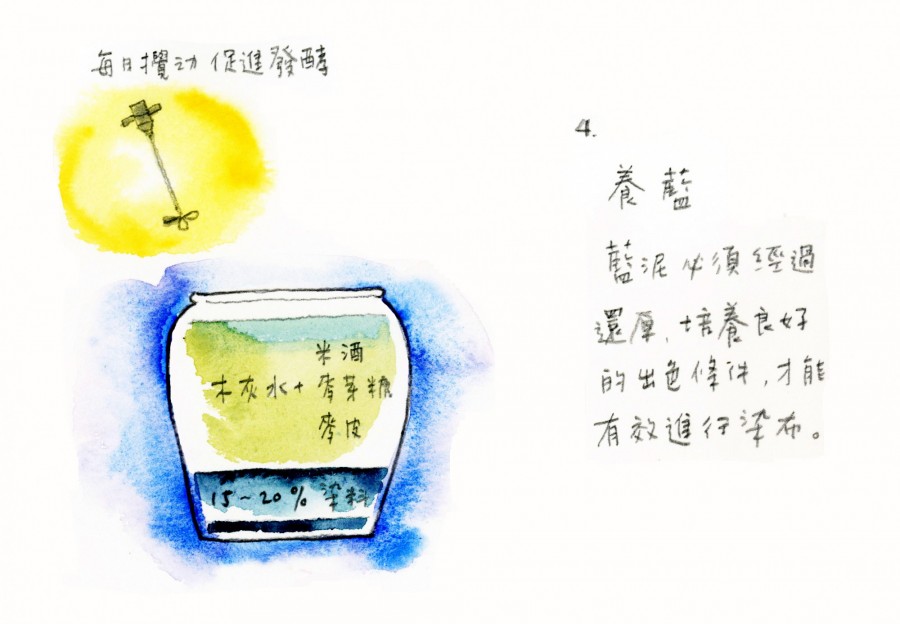 每日攪动促進發酵
米酒
木灰水+麥芽糖
麥皮
15~20%染料
4.
養藍
藍泥必須經過
還原,培養良好
的出色條件,才能
有效進行染布。